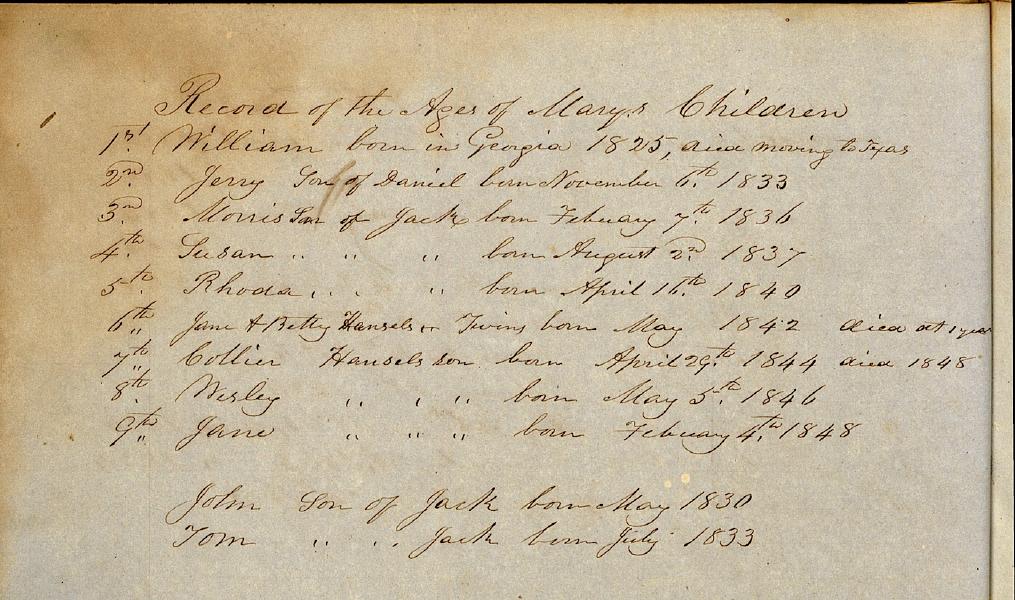 Record of the Ages of Mary's Children
1st. William born in Georgia 1825, died moving to Texas
2nd. Jerry Son of Daniel born November 6th. 1833
3rd. Morris Son of Jack born Febuary 7th. 1836
4th. Susan " " " born August 2nd. 1837
5th. Rhoda " " " born April 16th. 1840
6th Jane & Betty Hansels Twins born May 1842 died at 1 year
7th Collier Hansels son born April 29th. 1844 died 1848
8th. Wesley " " " born May 5th. 1846
9th Jane " " " born February 4th. 1848
John Son of Jack born May 1830
Tom " " Jack born July 1833